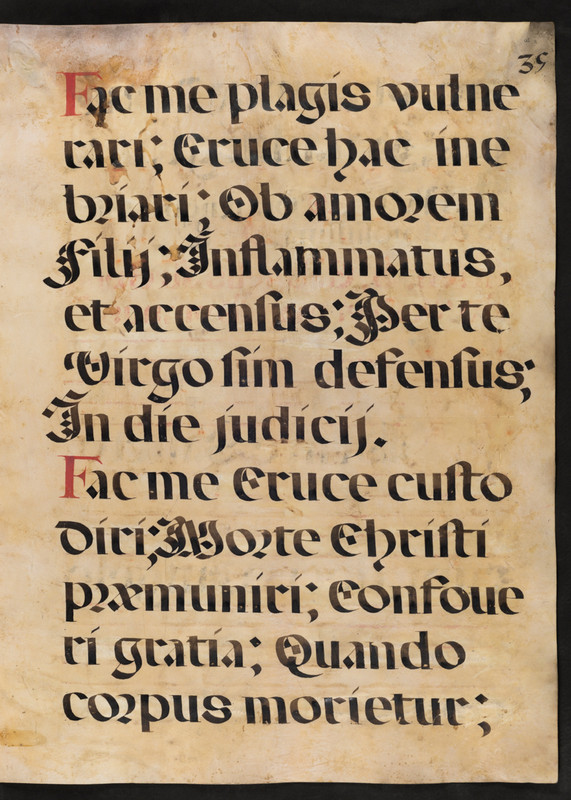 39
Fac me plagis vulne
rari; Cruce hac ine
briari; Ob amorem
Filij; Inflammatus,
et accenſus; Per te
Virgo ſim defenſus;
In die judicij.
Fac me Cruce cuſto
diri; Morte Chriſti
præmuniri; Confoue
ri gratia; Quando
corpus morietur;